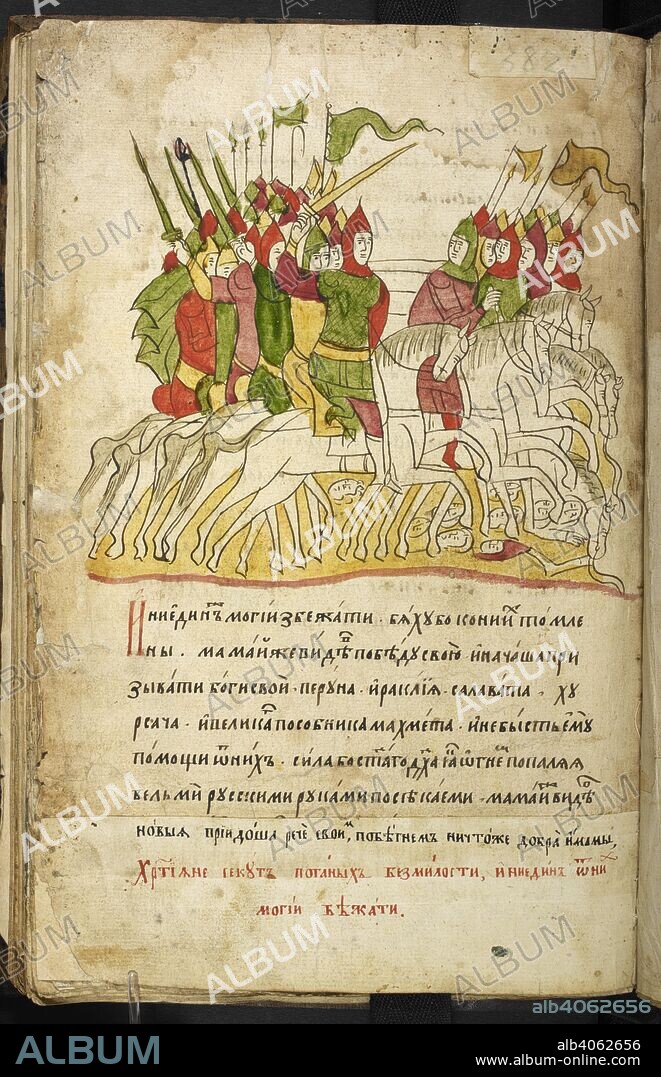 382
И ниединъ могїи збежати · бѧхꙋ бо кони ихъ томле
ны · мамай же видѣвъ побѣдꙋ свою и начаша при
зывати боги своѝ · перꙋна · и раклїѧ · салавата · хꙋ
рсача · и великаго пособника махмета · и не бысть емꙋ
помощи ѿ нихъ · сила бо стаго дх҃а ꙗко огнемъ попалѧѧ
вельми рꙋсскими рꙋками посѣкаеми · мамай видѣвъ
новыѧ прїидоша рече своимъ, побѣгнемъ ничтоже добра имамы,
Хрⷭ҇тїѧне секутъ поганыхъ безмилости, и ниединъ ѿ них
могїи бѣжати.
ALBUM
alb4062656
alb4062656
www.album-online.com